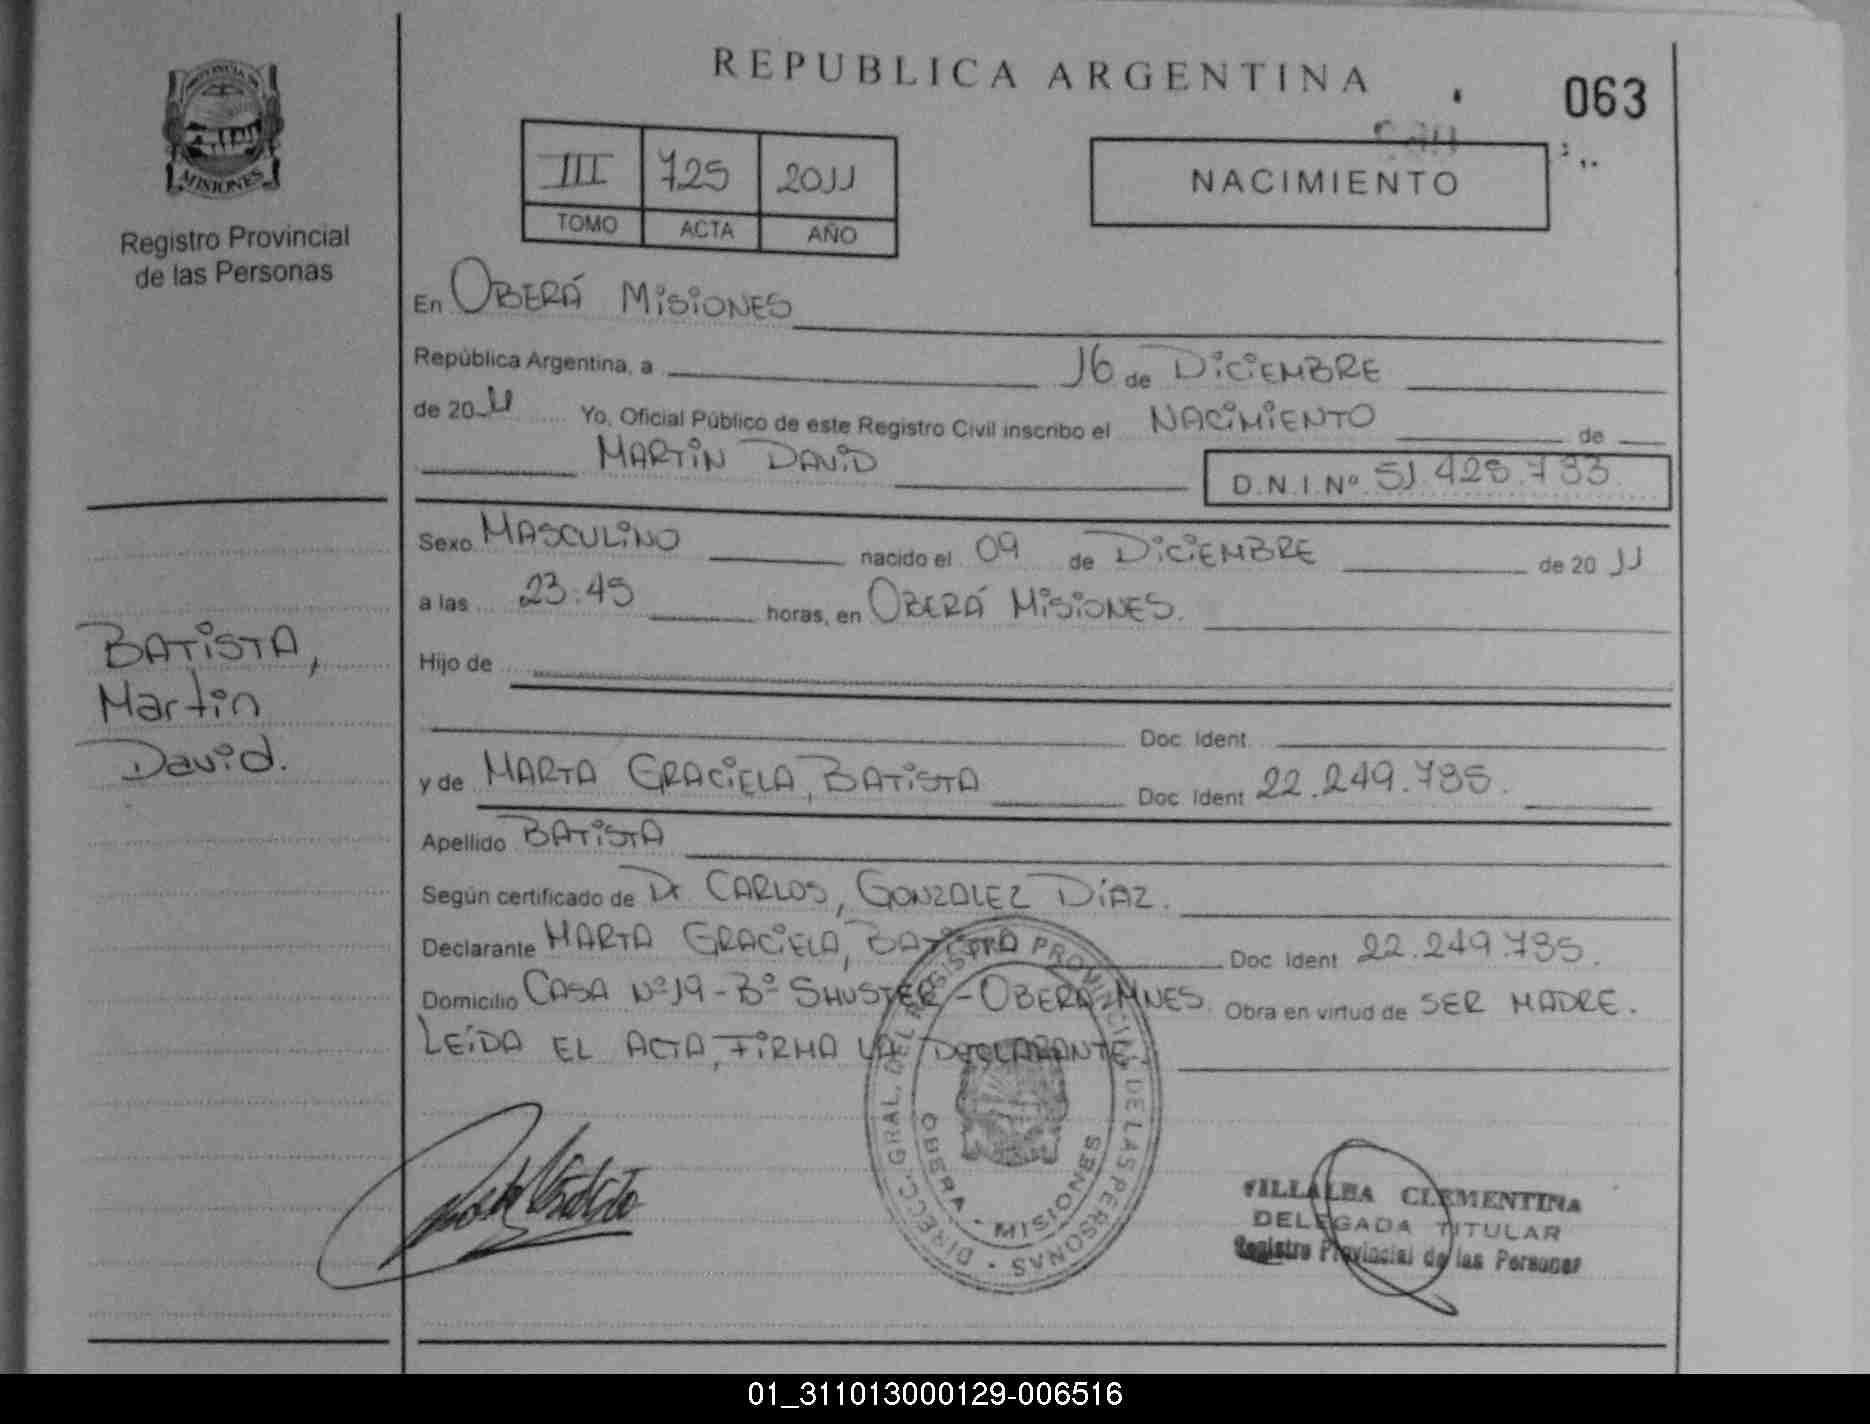 PROVINCIA DE
MISIONES
Registro Provincial
de las Personas
REPUBLICA ARGENTINA
063
III 725 2011
TOMO ACTA AÑO
NACIMIENTO
En OBERÁ MISIONES
República Argentina, a 16 de DICIEMBRE
de 2011 Yo, Oficial Público de este Registro Civil inscribo el NACIMIENTO de
MARTIN DAVID
D.N.I. Nº 51.425.733
Sexo MASCULINO nacido el 09 de DICIEMBRE de 2011
a las 23:45 horas, en OBERÁ MISIONES.
Hijo de
Doc. Ident.
y de MARTA GRACIELA, BATISTA Doc. Ident 22.249.735.
Apellido BATISTA
Según certificado de Dr CARLOS, GONZALEZ DÍAZ.
Declarante MARTA GRACIELA, BATISTA Doc. Ident 22.249.735.
Domicilio CASA Nº19-Bº SHUSTER-OBERA MNES. Obra en virtud de SER MADRE.
LEÍDA EL ACTA, FIRMA LA DECLARANTE.
BATISTA,
Martin
David.
DIRECC. GRAL. DEL REGISTRO PROVINCIAL DE LAS PERSONAS
OBERA - MISIONES
VILLALBA CLEMENTINA
DELEGADA TITULAR
Registro Provincial de las Personas
01_311013000129-006516